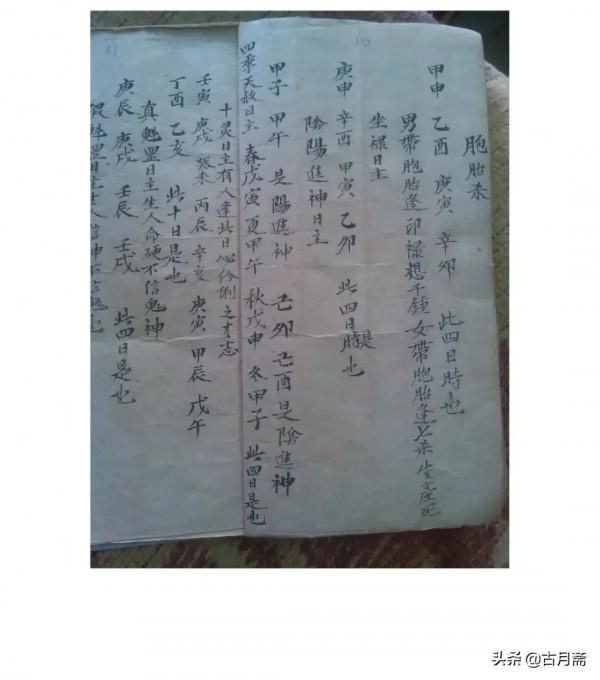 10
胞胎杀
甲申 乙酉 庚寅 辛卯 此四日時也
男帶胞胎逢印禄想千鍾女帶胞胎逢七杀生產死
坐禄日主
庚申 辛酉 甲寅 乙卯 此四日時是也
陰陽進神日主
甲子 甲午 是陽進神 己卯己酉是陰進神
四季天赦日主 春戊寅夏甲午 秋戊申 冬甲子 此四日是也
11
十灵日主有人逢此日心伶俐之才志
壬寅 庚戌 癸未 丙辰 辛亥 庚寅 甲辰 戊午
丁酉 乙亥 此十日是也
真魁罡日主生人命硬不信鬼神
庚辰 庚戌 壬辰 壬戌 此四日是也
假魁罡日主生人信神不信鬼也
头条 @古月斋